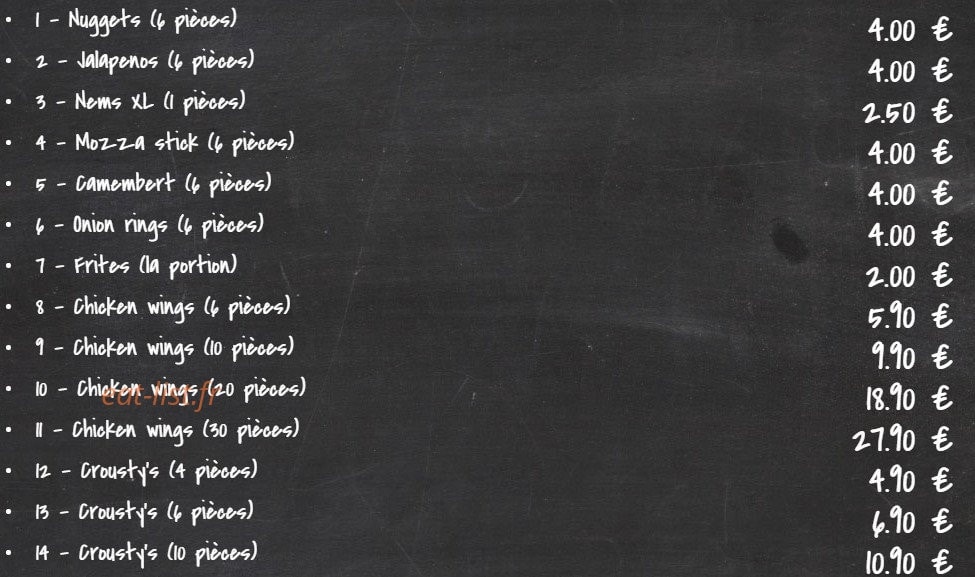 • 1 - Nuggets (6 pièces) 4.00 €
• 2 - Jalapenos (6 pièces) 4.00 €
• 3 - Nems XL (1 pièces) 2.50 €
• 4 - Mozza stick (6 pièces) 4.00 €
• 5 - Camembert (6 pièces) 4.00 €
• 6 - Onion rings (6 pièces) 4.00 €
• 7 - Frites (la portion) 2.00 €
• 8 - Chicken wings (6 pièces) 5.90 €
• 9 - Chicken wings (10 pièces) 9.90 €
• 10 - Chicken wings (20 pièces) 18.90 €
eat-list.fr
• 11 - Chicken wings (30 pièces) 27.90 €
• 12 - Crousty's (4 pièces) 4.90 €
• 13 - Crousty's (6 pièces) 6.90 €
• 14 - Crousty's (10 pièces) 10.90 €